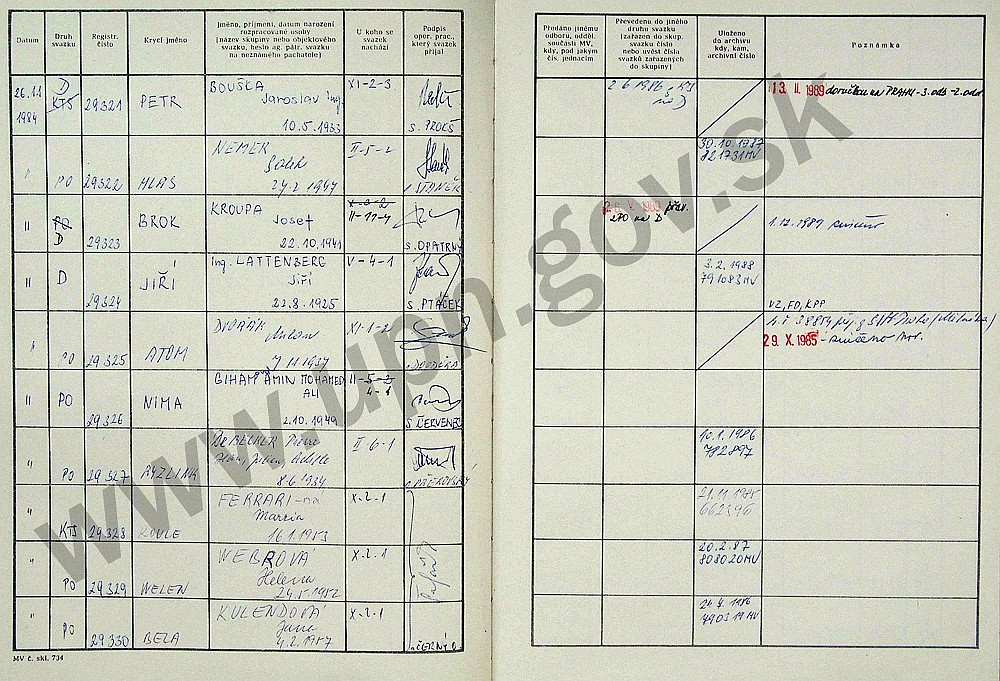 Datum
Druh svazku
Registr. číslo
Krycí jméno
Jméno, příjmení, datum narození
rozpracované osoby
(název skupiny nebo objektového
svazku, heslo ag. pátr. svazku
na neznámého pachatele)
U koho se svazek nachází
Podpis oper. prac., který svazek přijal
Předáno jinému
odboru, odděl.
součásti MV,
kdy, pod jakým
čís. jednacím
Převedeno do jiného
druhu svazku
(zařazen do skup.
svazku číslo
nebo uvést čísla
svazků zařazených
do skupiny)
Uloženo
do archivu
kdy, kam,
archivní číslo
Poznámka
26.11 1984
D
KTS
29321
PETR
BOUŠKA
Jaroslav ing.
10.5.1933
XI-2-3
s. PROKŠ
2 6 1986
13. II. 1989 doručeno na PRAHU-3.odb-2.odd
PO
29322
HLAS
NEMER
27.2.1947
II-5-2
30.10.1987
821731MV
II
PO
D
29323
BROK
KROUPA
Josef
22.10.1941
II-11-4
s. OPATRNÝ
V. 1989
270 na D
1.12.1989
II
D
29324
JIŘÍ
ing. LATTENBERG
JIŘÍ
22.8.1925
V-4-1
s. PTÁČEK
3.2.1988
791083MV
VZ, FD, KPP
PO
29325
ATOM
DVOŘÁK
7.11.1937
XI-1-2
29. X. 1985
II
PO
29326
NIMA
GIHAM AMIN MOHAMED
ALI
2.10.1949
II-5-2
4-1
s ČERVENEC
"
PO
29327
RYZLINK
De BECKER Pierre
8.6.1934
II 6-1
10.1.1986
782897
"
KTS
29328
FERRARI-ná
Marcia
16.1.1953
X-2-1
21.11.1985
662396
"
PO
29329
WELEN
WEBROVÁ
Helena
24.5.1952
X-2-1
20.2.87
808020MV
"
PO
29330
BELA
KULENDOVÁ
Jana
4.2.1957
X-2-1
s. ČERNÝ
24 4 1986
790519MV
MV č. skl. 734
www.upn.gov.sk